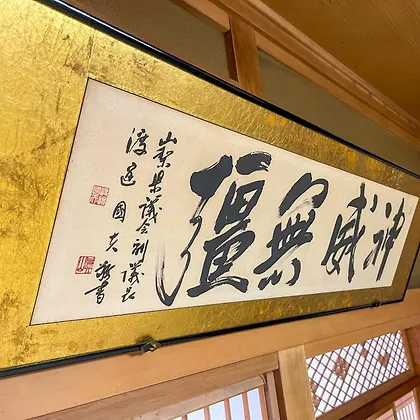 神威無疆
山梨県議会副議長
渡邉國夫 謹書